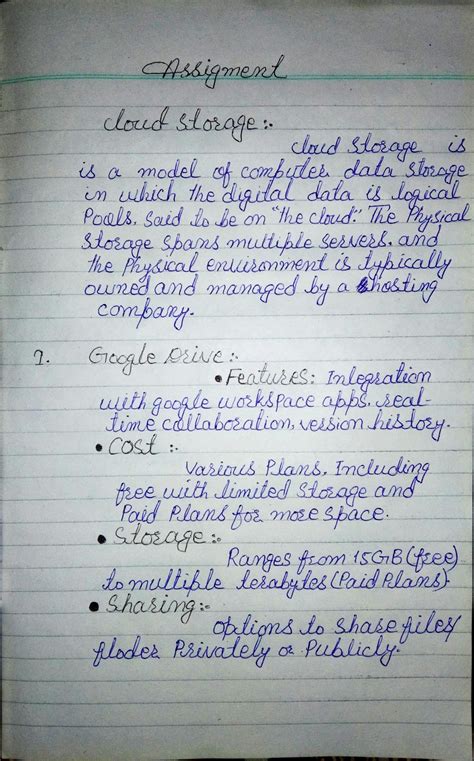 Assigment
Cloud Storage:-
Cloud Storage is
is a model of computer data storage
in which the digital data is logical
Pools, said to be on "the cloud." The Physical
Storage spans multiple servers, and
the Physical environment is typically
owned and managed by a hosting
company.
1. Google Drive:-
• Features: Integration
with google workspace apps, real-
time collaboration, version history.
• Cost :-
Various Plans, Including
free with limited Storage and
Paid Plans for more space.
• Storage:-
Ranges from 15GB (free)
to multiple terabytes (Paid Plans)
• Sharing:-
options to share files/
floder Privately or Publicly.